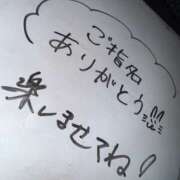 ご指名
ありがとう!!
楽しませてね!